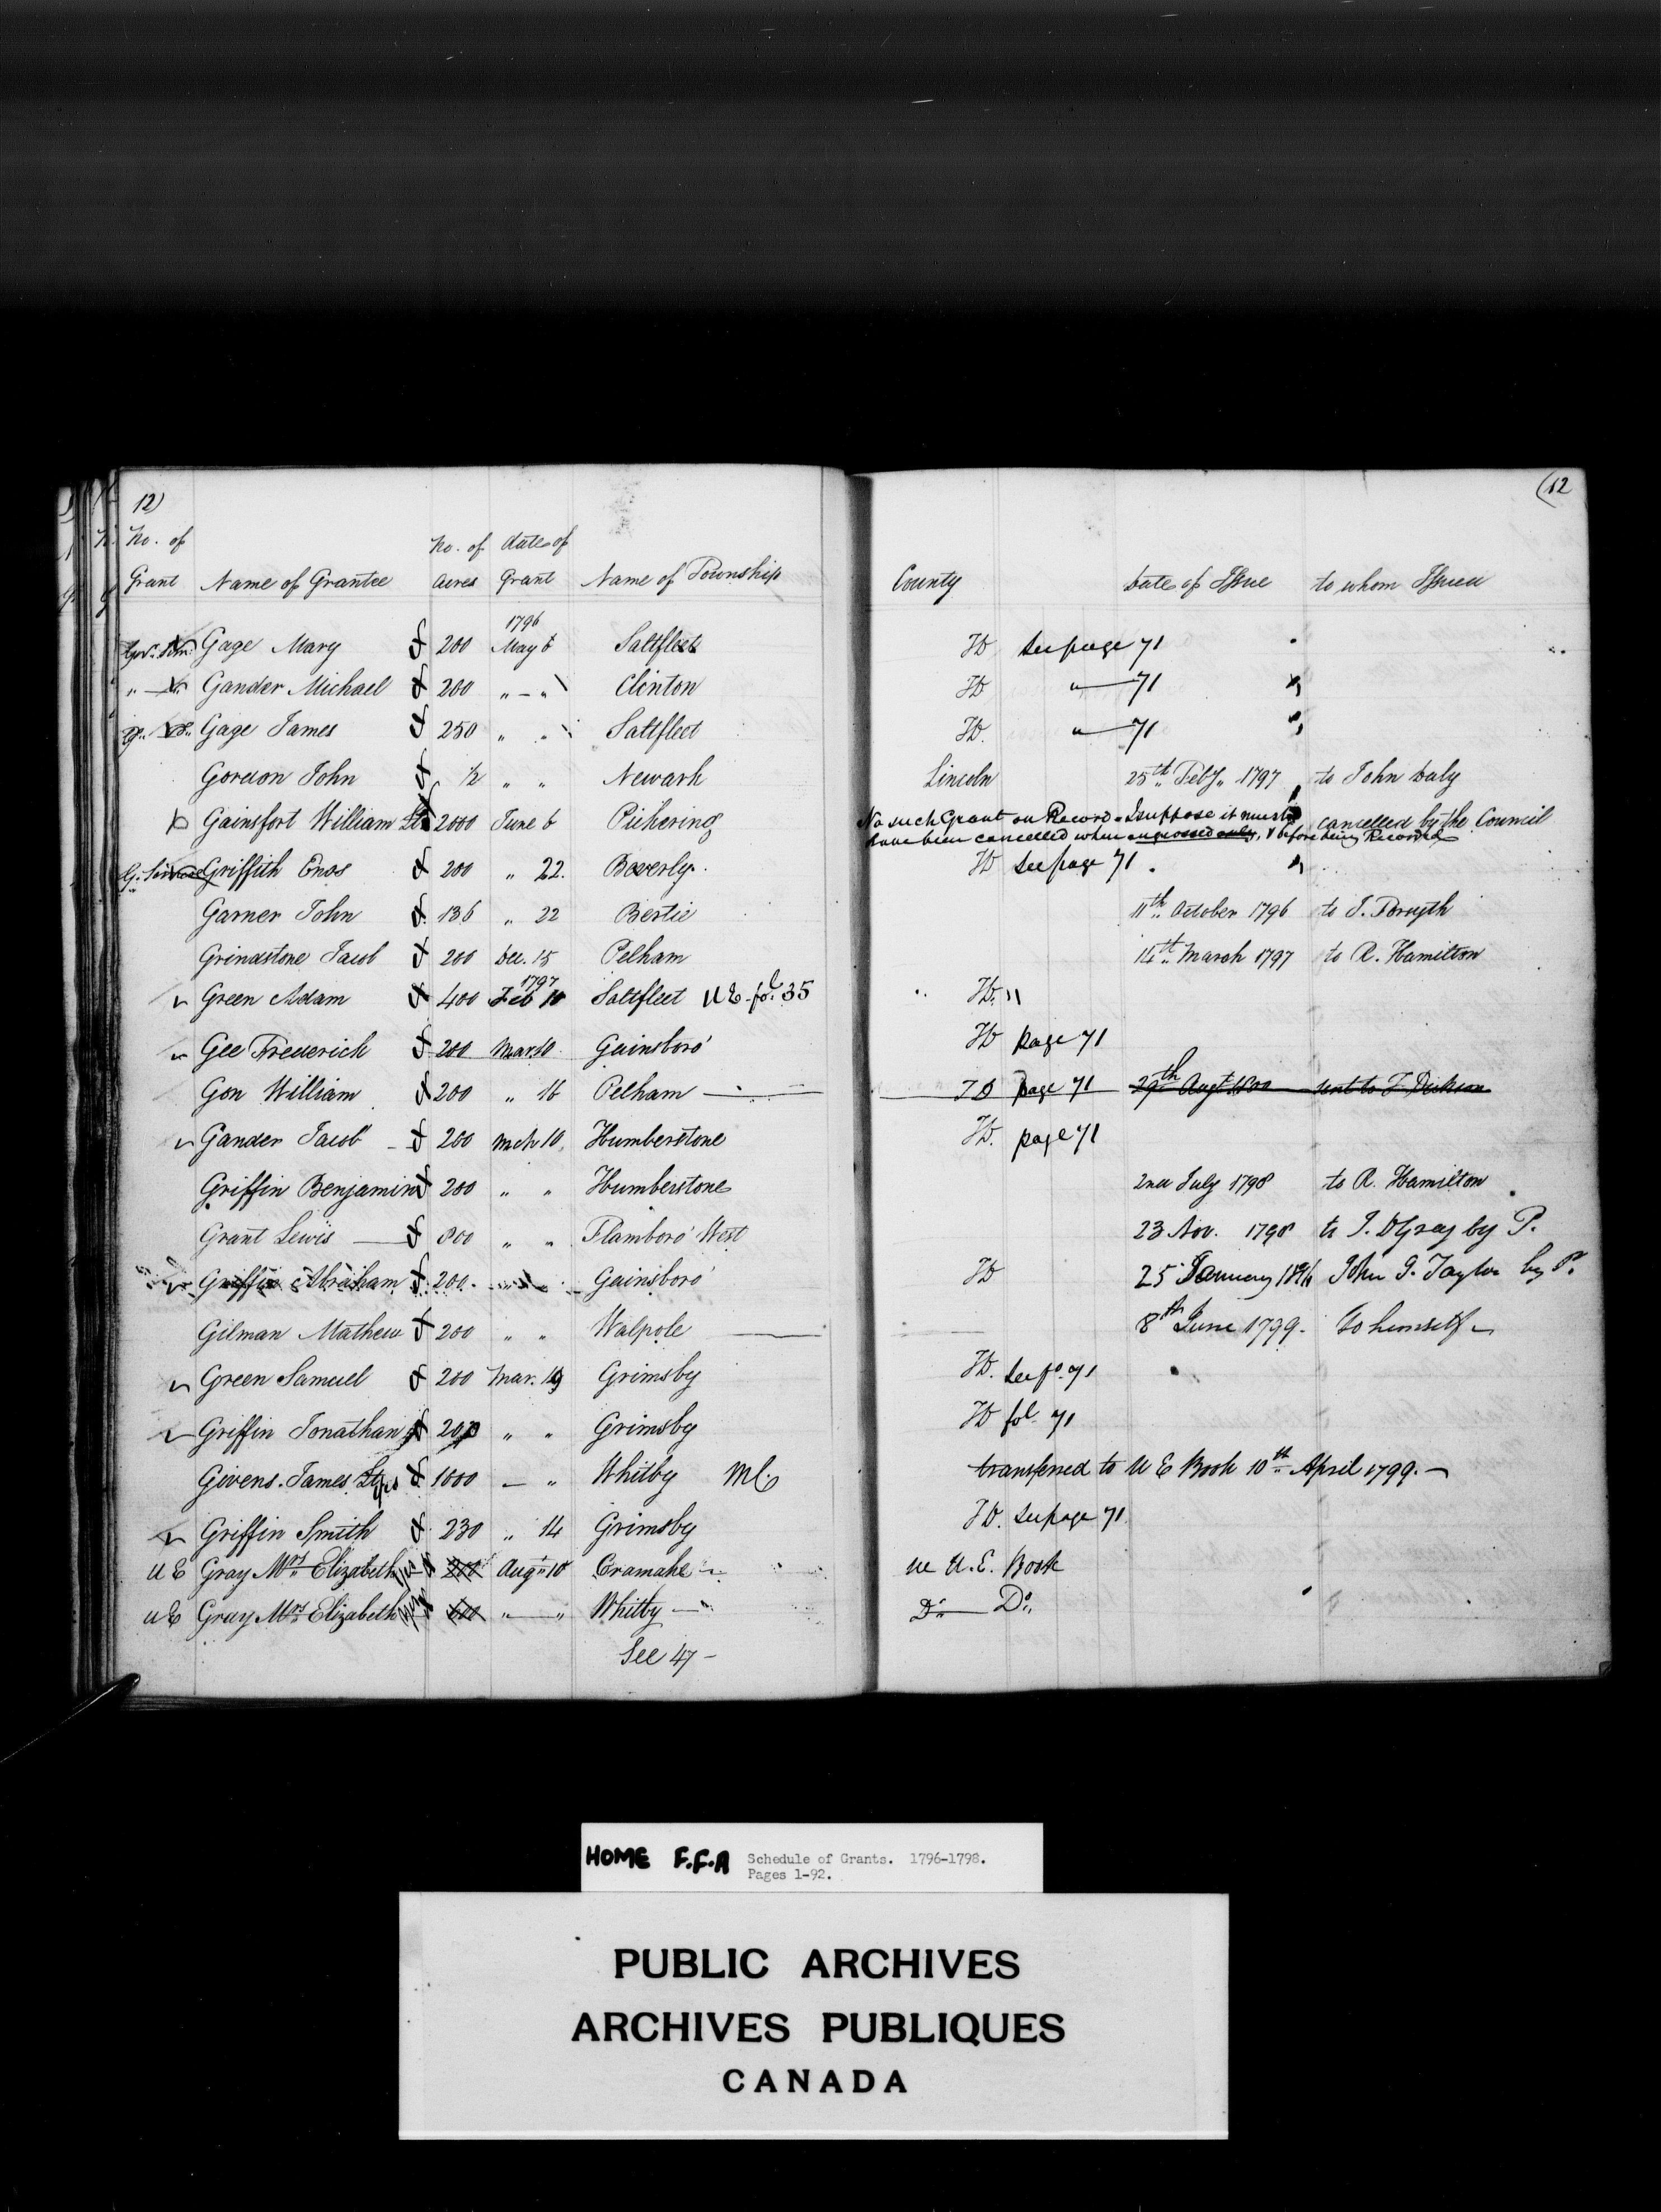 12)
(12
No. of
Grant Name of Grantee No. of Acres date of Grant Name of Township County Date of Issue to whom Issued
1796
Gage Mary 200 May 6 Saltfleet HD See page 71
" Gander Michael 200 " - " Clinton HD " 71
Gage James 250 " " Saltfleet HD. " 71
Gordon John 1/2 " " Newark Lincoln 25th Feby 1797 to John Daly
Gainsfort William Lt 2000 June 6 Pickering No such Grant on Record. I suppose it must cancelled by the Council
have been cancelled when engrossed only, & before being Recorded
Griffith Enos 200 " 22. Beverly. HD See page 71.
Garner John 136 " 22 Bertie 11th October 1796 to J. Forsyth
Grindstone Jacob 200 Dec. 15 Pelham 14th March 1797 to R. Hamilton
1797
Green Adam 400 Feb 10 Saltfleet U E fol 35 HD. "
Gee Frederick 200 Mar. 10 Gainsboro' HD page 71
Gon William 200 " 16 Pelham HD page 71 29th Augt 1800 sent to T. Dickson
Gander Jacob 200 Mch 10 Humberstone HD. page 71
Griffin Benjamin 200 " " Humberstone 2nd July 1798 to R. Hamilton
Grant Lewis 800 " " Flamboro' West 23 Nov. 1798 to J. D Gray by P.
Griffin Abraham 200. Gainsboro' HD 25 January John J. Taylor by P.
Gilman Mathew 200 " " Walpole 8th June 1799. To himself
Green Samuel 200 Mar. 19 Grimsby HD. See fo. 71
Griffin Jonathan 200 " " Grimsby HD fol 71
Givens. James Lt 1000 — " Whitby transferred to U E Book 10th April 1799.
Griffin Smith 230 " 14 Grimsby HD. See page 71
U E Gray Mrs Elizabeth 200 Augt 10 Cramahe U.E. Book
U E Gray Mrs Elizabeth 600 " " Whitby Do Do
See 47
HOME F.F.A Schedule of Grants. 1796-1798.
Pages 1-92.
PUBLIC ARCHIVES
ARCHIVES PUBLIQUES
CANADA